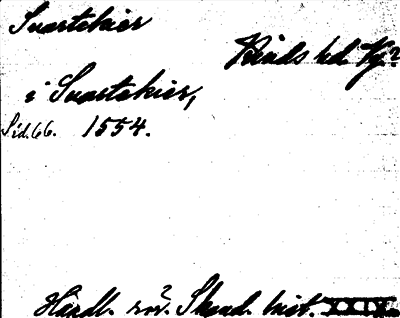 Svartekier
Kinds hd Kj?
i Svartekier,
Sid. 66. 1554.
Handl. rör. Skand. hist. XXIX.